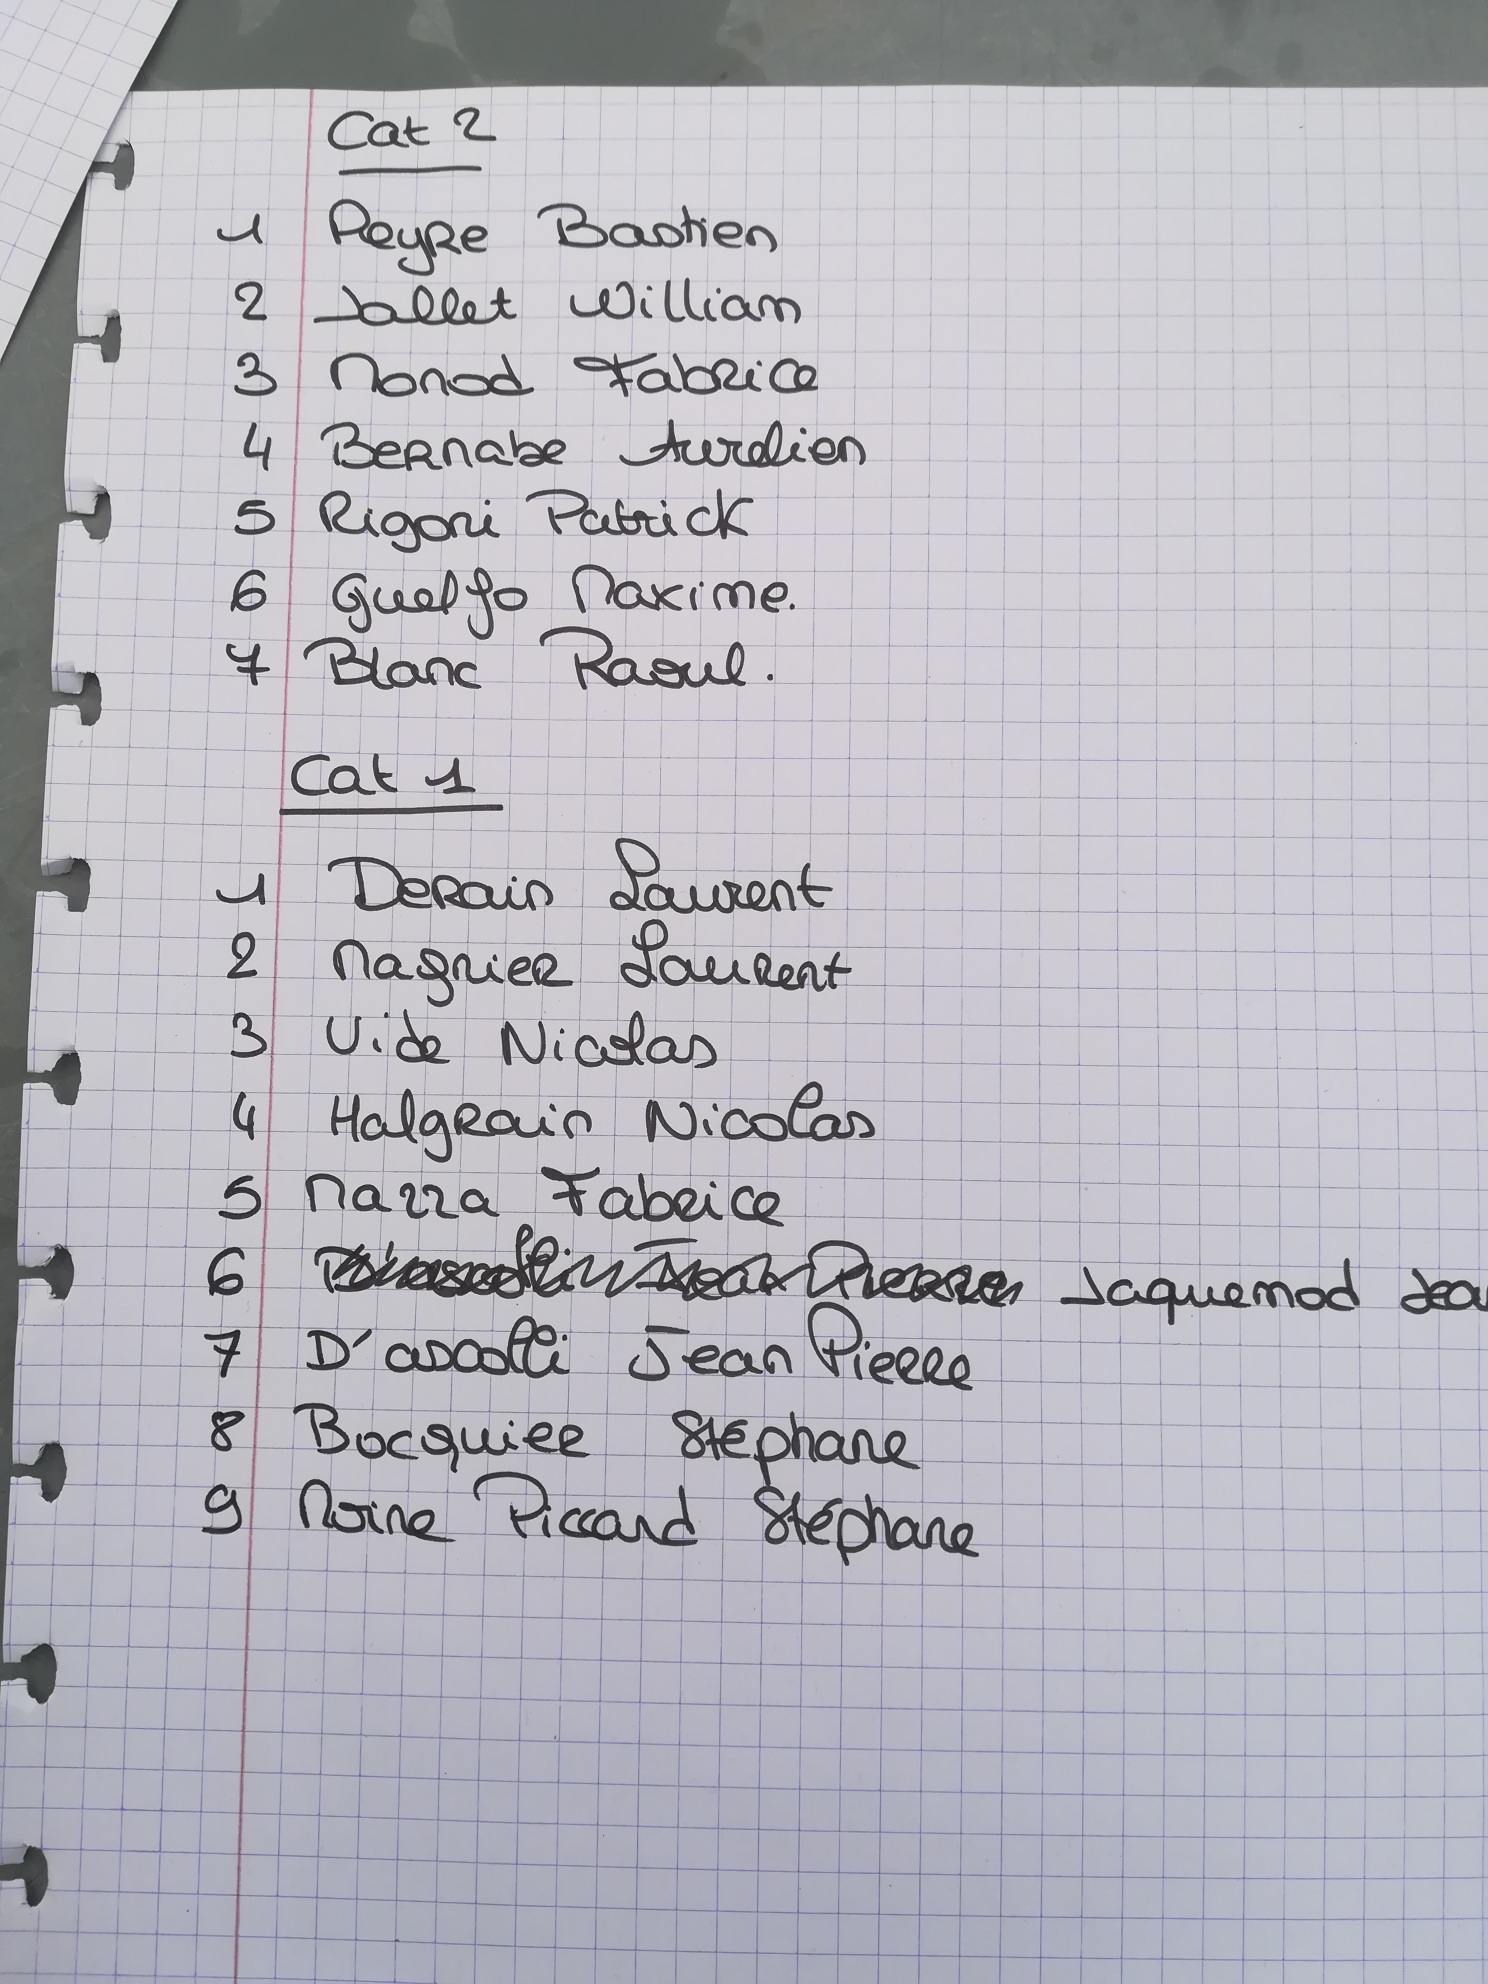 Cat 2
1 Peyre Bastien
2 Jallet William
3 Monod Fabrice
4 Bernabe Aurelien
5 Rigoni Patrick
6 Guelfo Maxime.
7 Blanc Raoul.
Cat 1
1 Derain Laurent
2 Magnier Laurent
3 Vide Nicolas
4 Halgrain Nicolas
5 Mazza Fabrice
6 D'ascolli Jean Pierre Jaquemod Jea
7 D'ascolli Jean Pierre
8 Bocquier Stéphane
9 Moine Piccard Stéphane